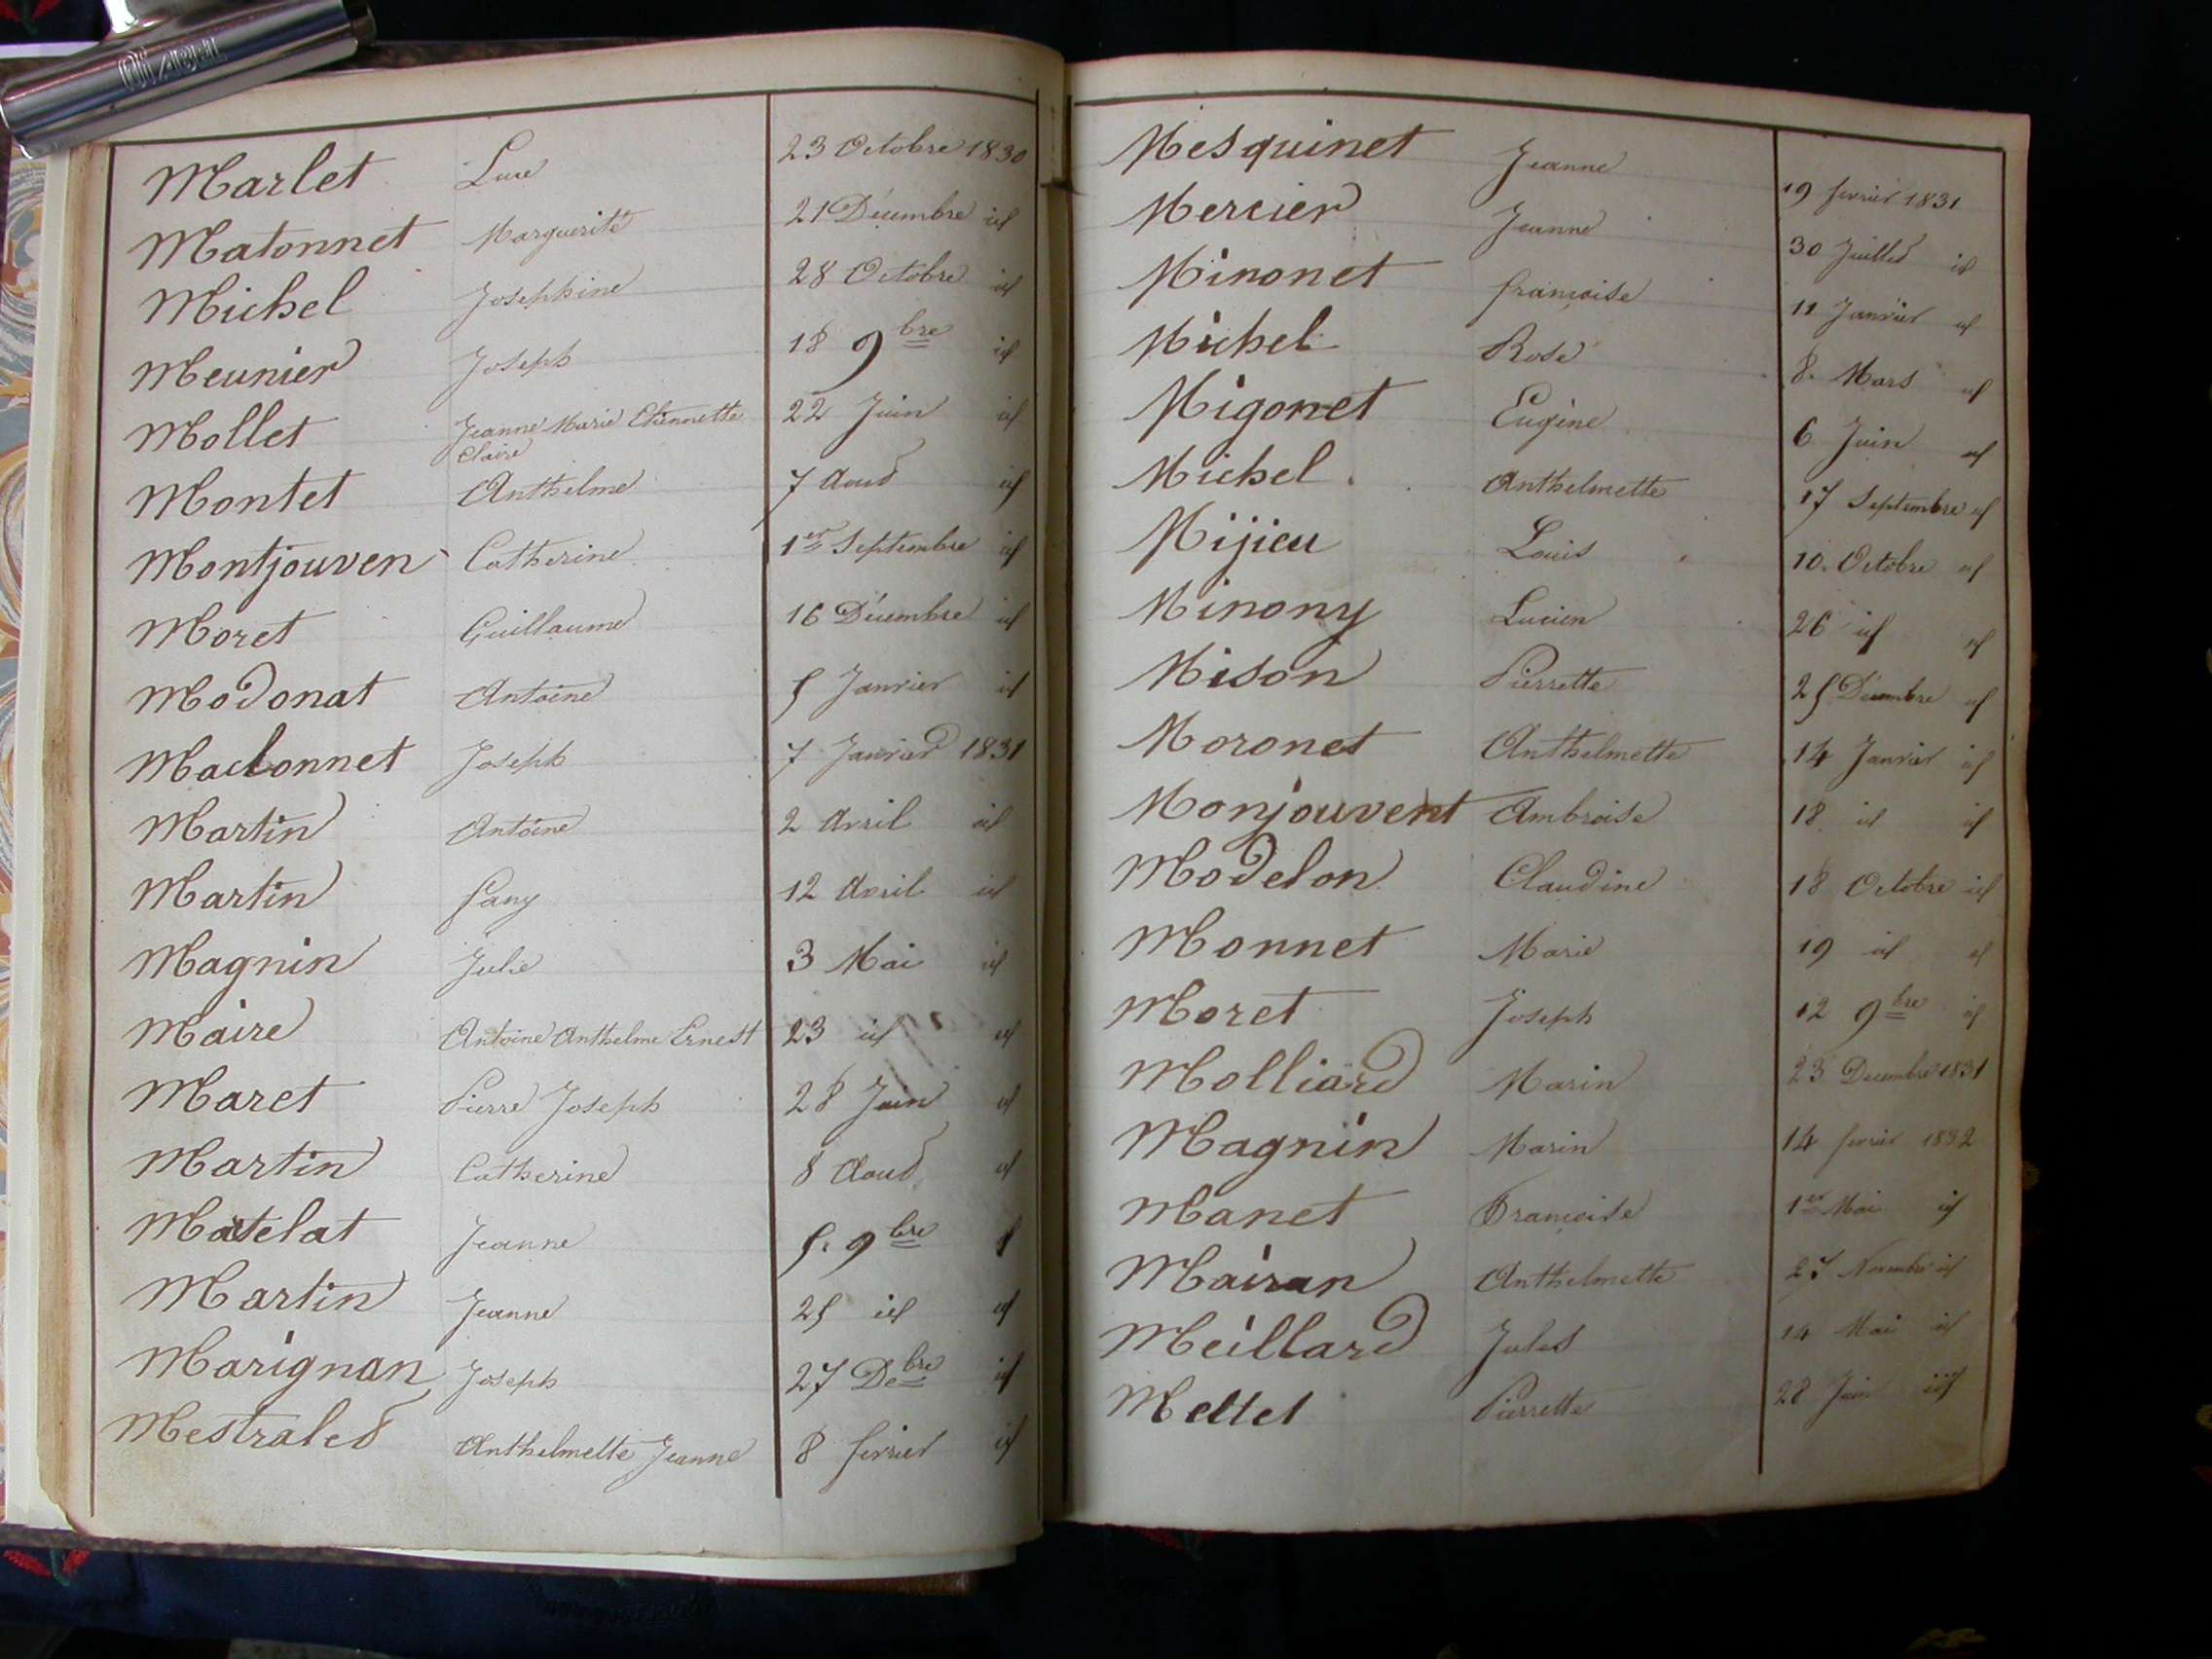 Marlet Luce 23 Octobre 1830
Matonnet Marguerite 21 Décembre id
Michel Josephine 28 Octobre id
Meunier Joseph 18 9bre id
Mollet Jeanne Marie Etiennette Claire 22 Juin id
Montet Anthelme 7 Aout id
Montjouven Catherine 1er Septembre id
Moret Guillaume 16 Décembre id
Modonat Antoine 5 Janvier id
Madonnet Joseph 7 Janvier 1831
Martin Antoine 2 Avril id
Martin Fany 12 Avril id
Magnin Julie 3 Mai id
Maire Antoine Anthelme Ernest 23 id id
Maret Pierre Joseph 28 Juin id
Martin Catherine 8 Aout id
Matelat Jeanne 5. 9bre id
Martin Jeanne 25 id id
Marignan Joseph 27 Debre id
Mestralet Anthelmette Jeanne 8 fevrier id
Mesquinet Jeanne 19 fevrier 1831
Mercier Jeanne 30 Juillet id
Minonet françoise 11 Janvier id
Michel Rose 8. Mars id
Migonet Eugène 6 Juin id
Michel Anthelmette 17 Septembre id
Mijieu Louis 10. Octobre id
Minony Lucien 26 id id
Mison Pierrette 25 Décembre id
Moronet Anthelmette 14 Janvier id
Monjouvent Ambroise 18 id id
Modelon Claudine 18 Octobre id
Monnet Marie 19 id id
Moret Joseph 12 9bre id
Molliard Marin 23 Decembre 1831
Magnin Marin 14 fevrier 1832
Manet Françoise 1er Mai id
Mairan Anthelmette Novembre id
Meillard Jules 14 Mai id
Mettet Pierrette 28 Juin id